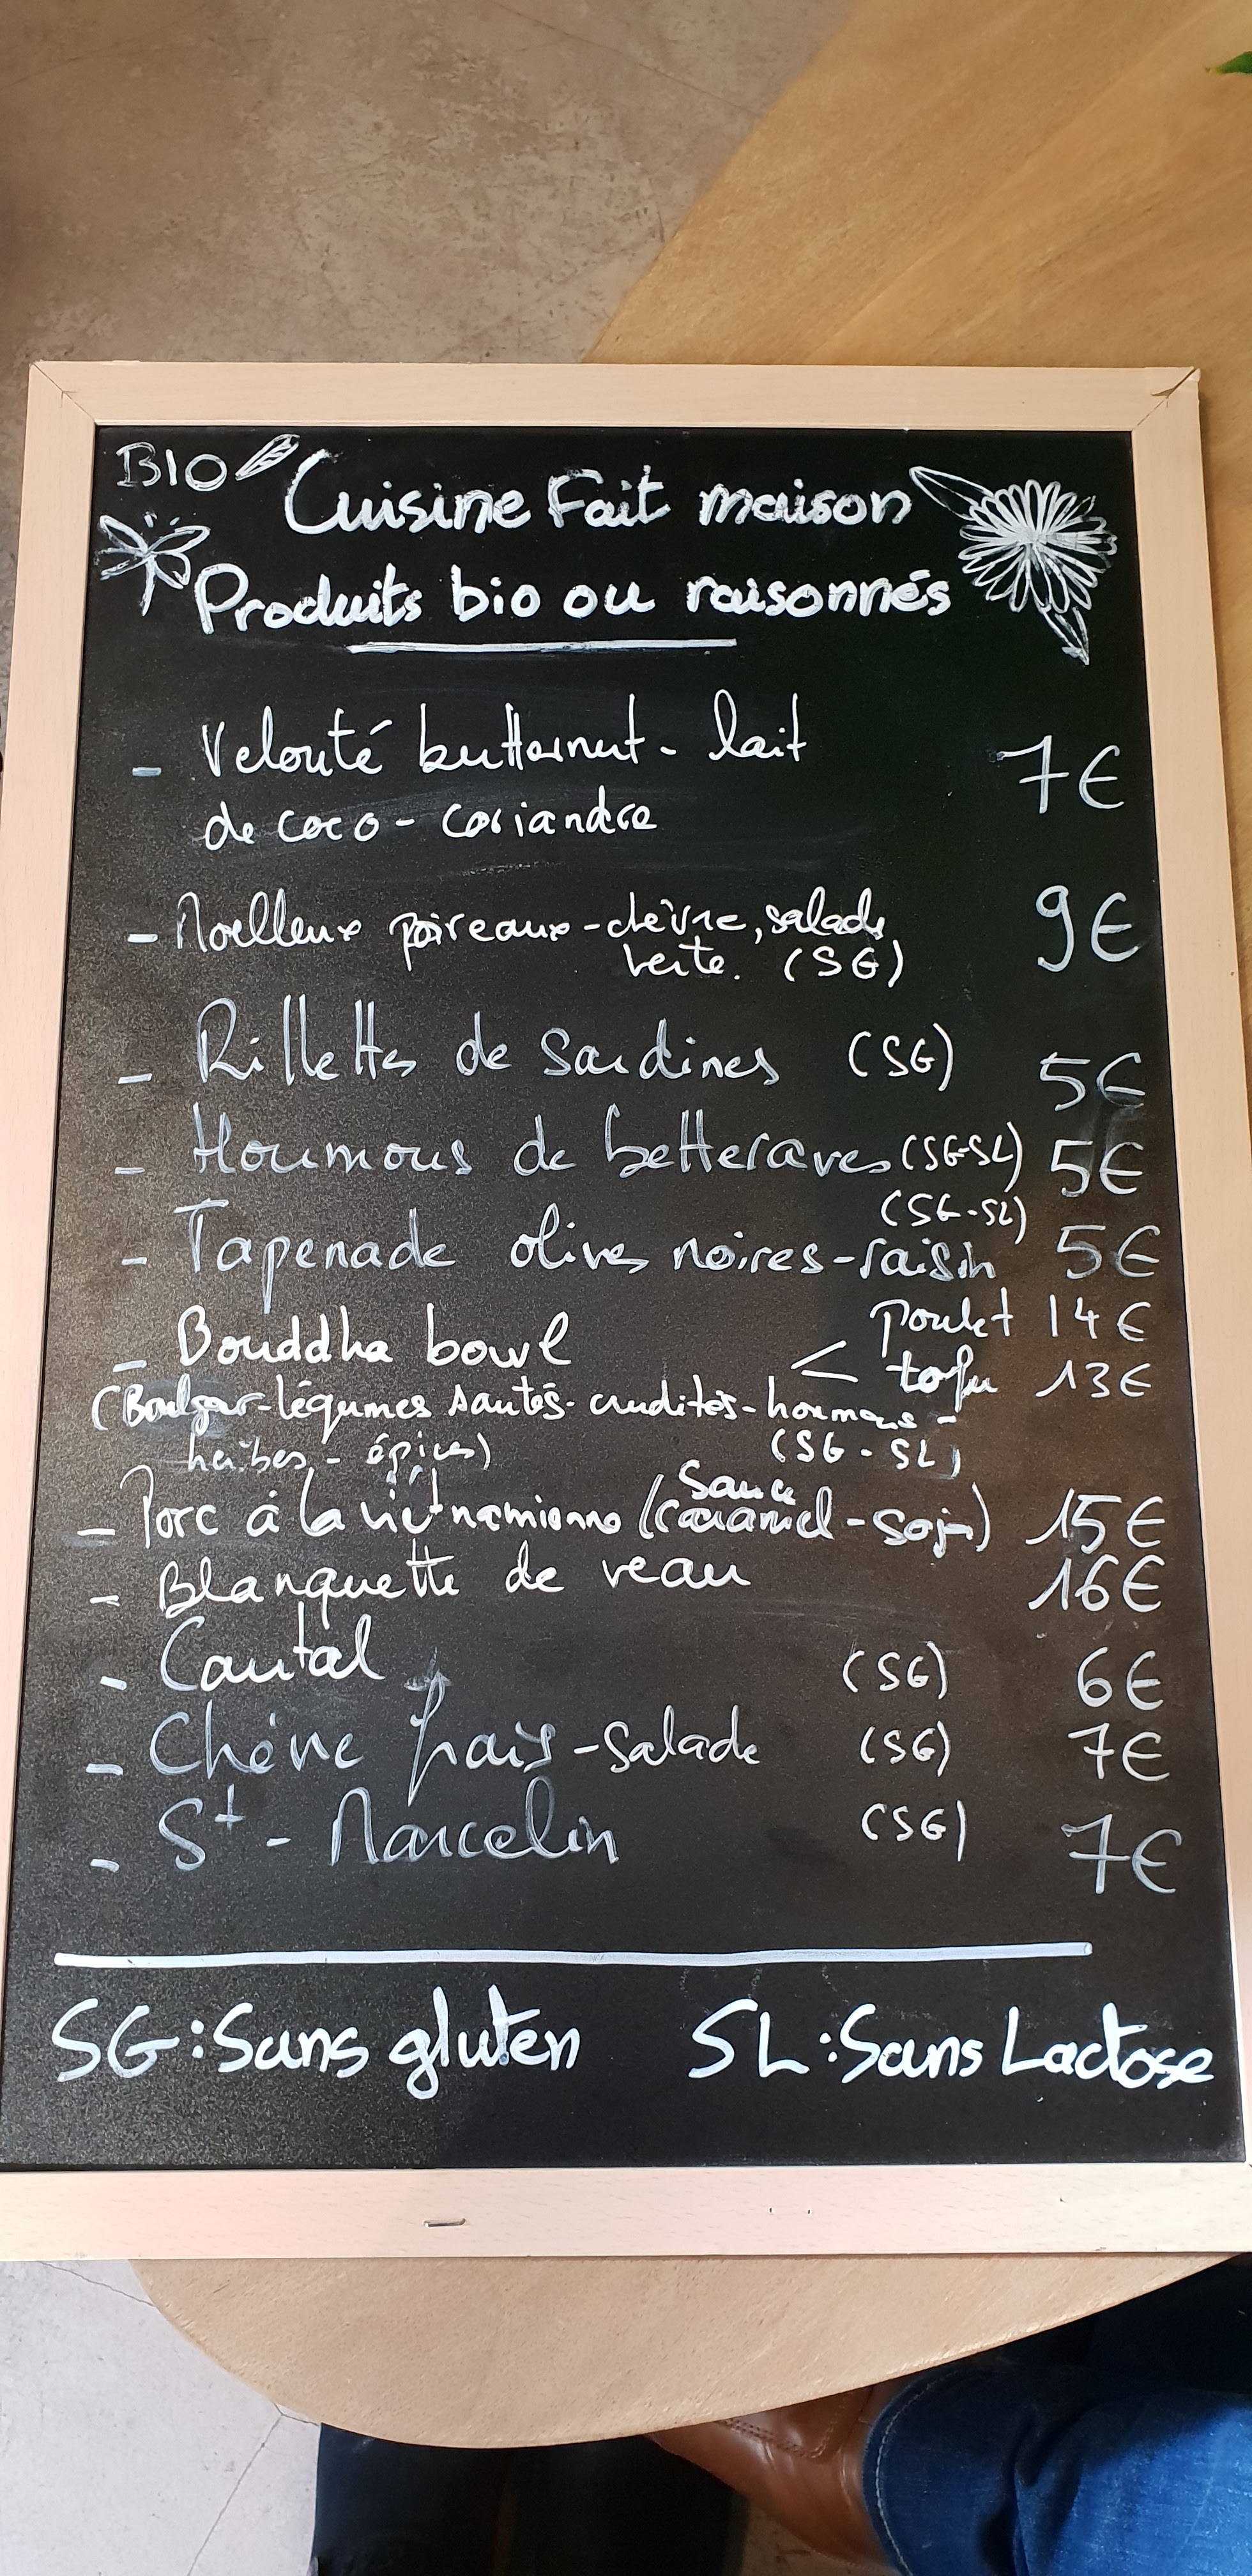 BIO
Cuisine Fait maison
Produits bio ou raisonnés
- Velouté butternut - lait
de coco - coriandre 7€
- Moelleux poireaux - chèvre, salade
verte. (SG) 9€
- Rillettes de Sardines (SG) 5€
- Houmous de betteraves (SG-SL) 5€
(SG-SL)
- Tapenade olives noires - raisin 5€
- Bouddha bowl < poulet 14€
tofu 13€
(Boulgour - légumes sautés - crudités - houmous -
herbes - épices) (SG - SL)
- Porc à la vietnamienne (Sauce
caramel - soja) 15€
- Blanquette de veau 16€
- Cantal (SG) 6€
- Chèvre frais - Salade (SG) 7€
- St - Marcelin (SG) 7€
SG : Sans gluten SL : Sans Lactose